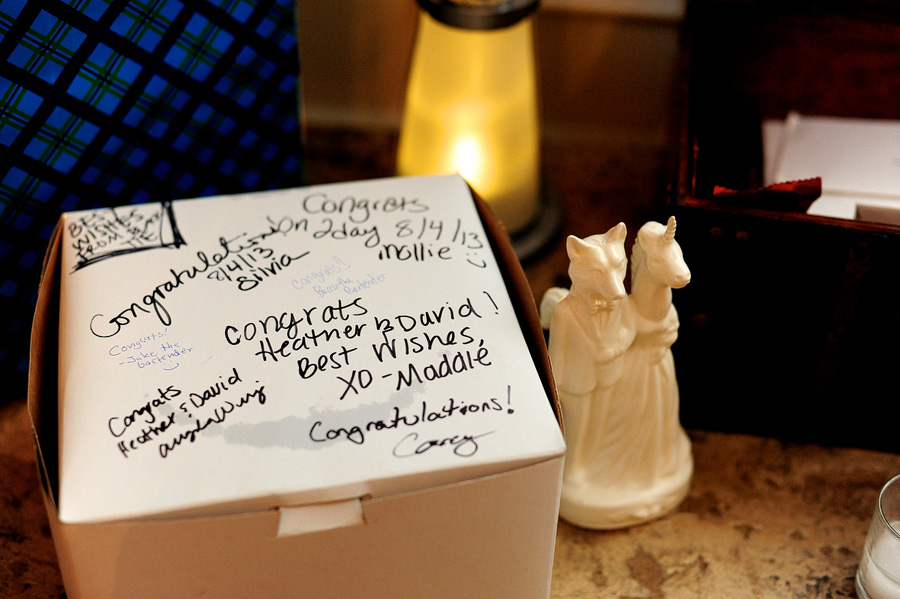 BEST
WISHES
FROM
THE
Congratulations
8/4/13
Silvia
Congrats
On 2day 8/4/13
mollie
Congrats!!
Bartender
Congrats!
-Jake the
bartender
congrats
Heather & David!
Best Wishes,
XO - Maddie
Congrats
Heather & David
Congratulations!